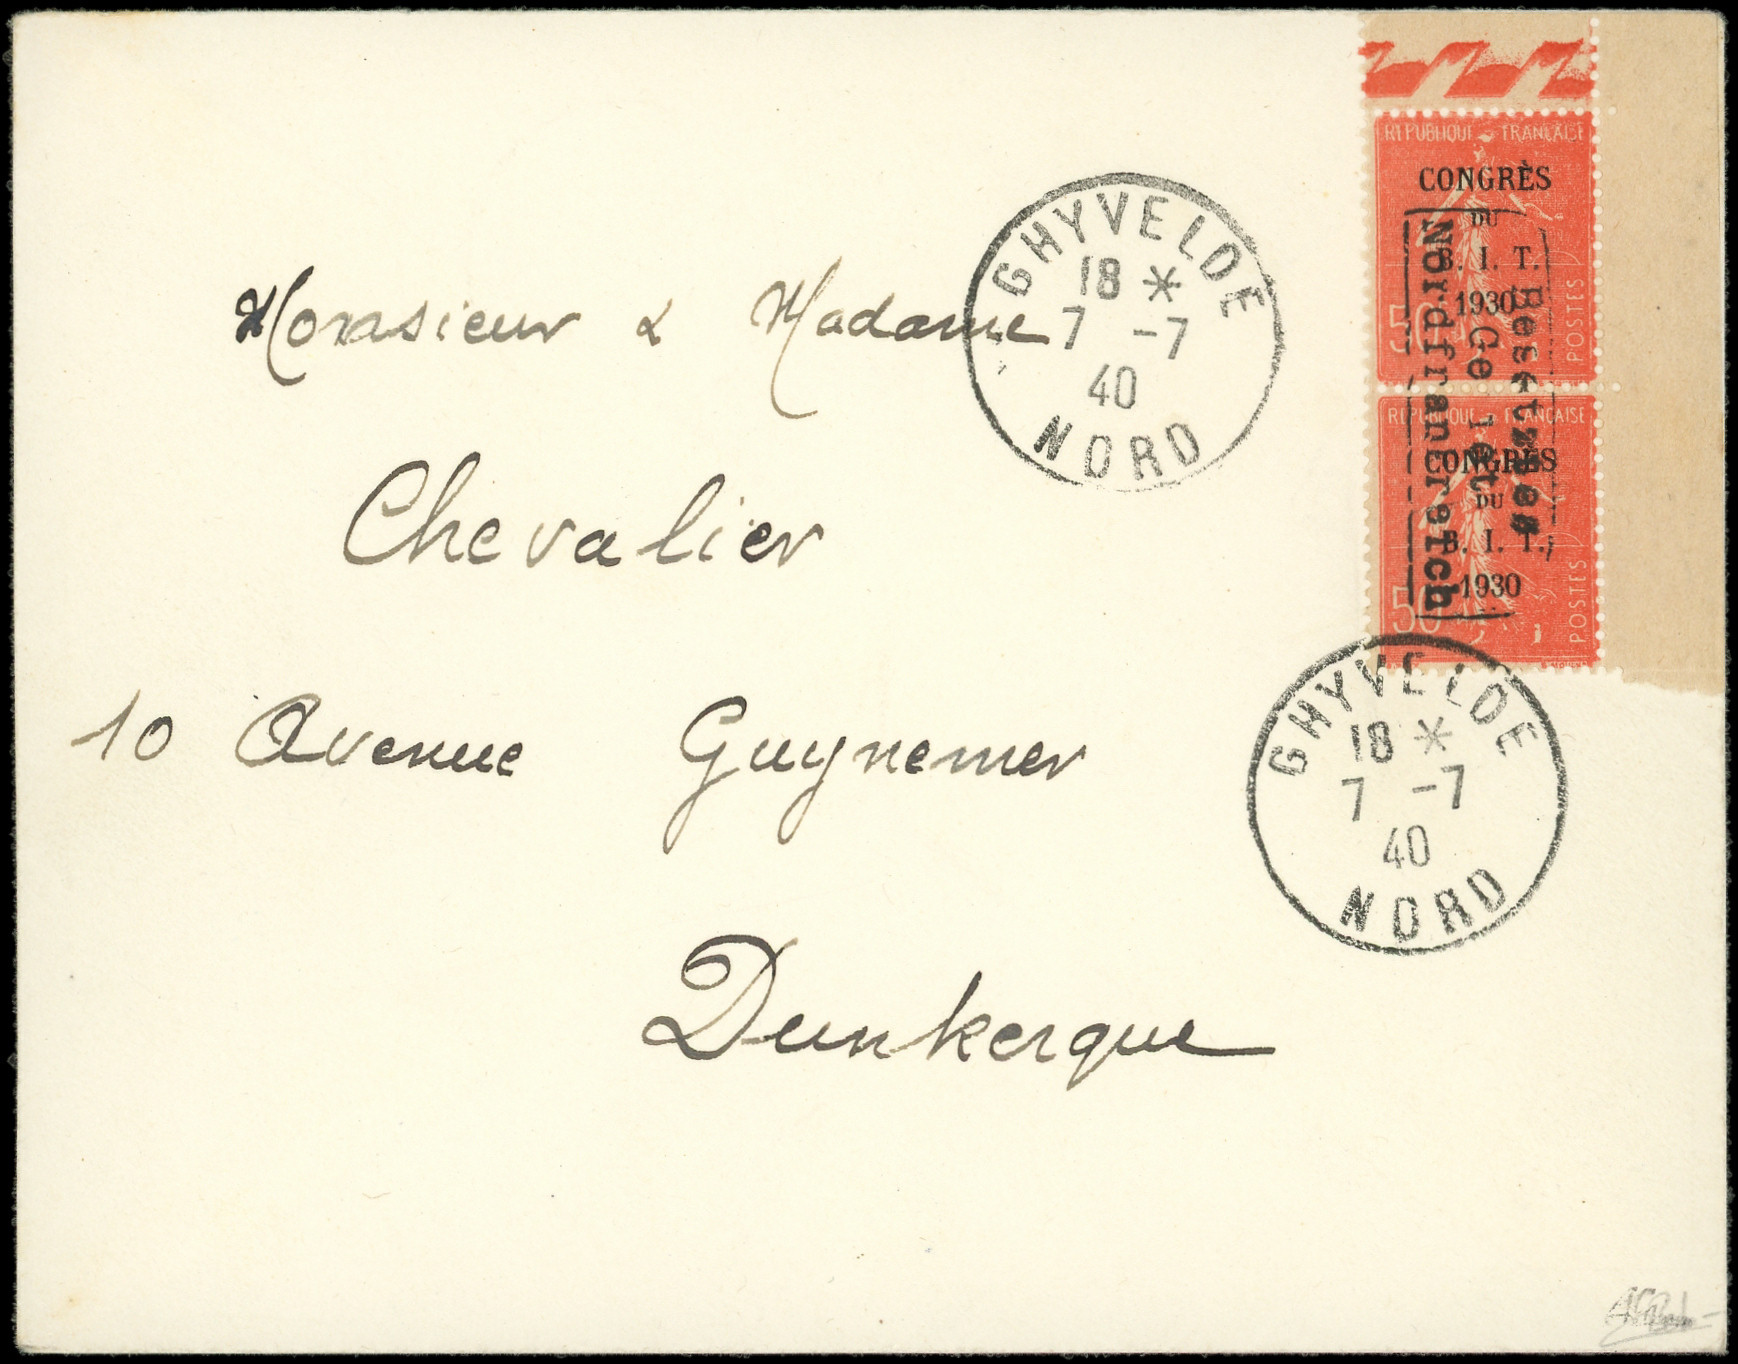 Monsieur & Madame
Chevalier
10 Avenue Guynemer
Dunkerque
GHYVELDE
18 *
7 -7
40
NORD
REPUBLIQUE FRANÇAISE
CONGRÈS
DU
B. I. T.
1930
50
POSTES
REPUBLIQUE FRANÇAISE
CONGRÈS
DU
B. I. T.
1930
50
POSTES
Besetztes
Gebiet
Nordfrankreich
GHYVELDE
18 *
7 -7
40
NORD